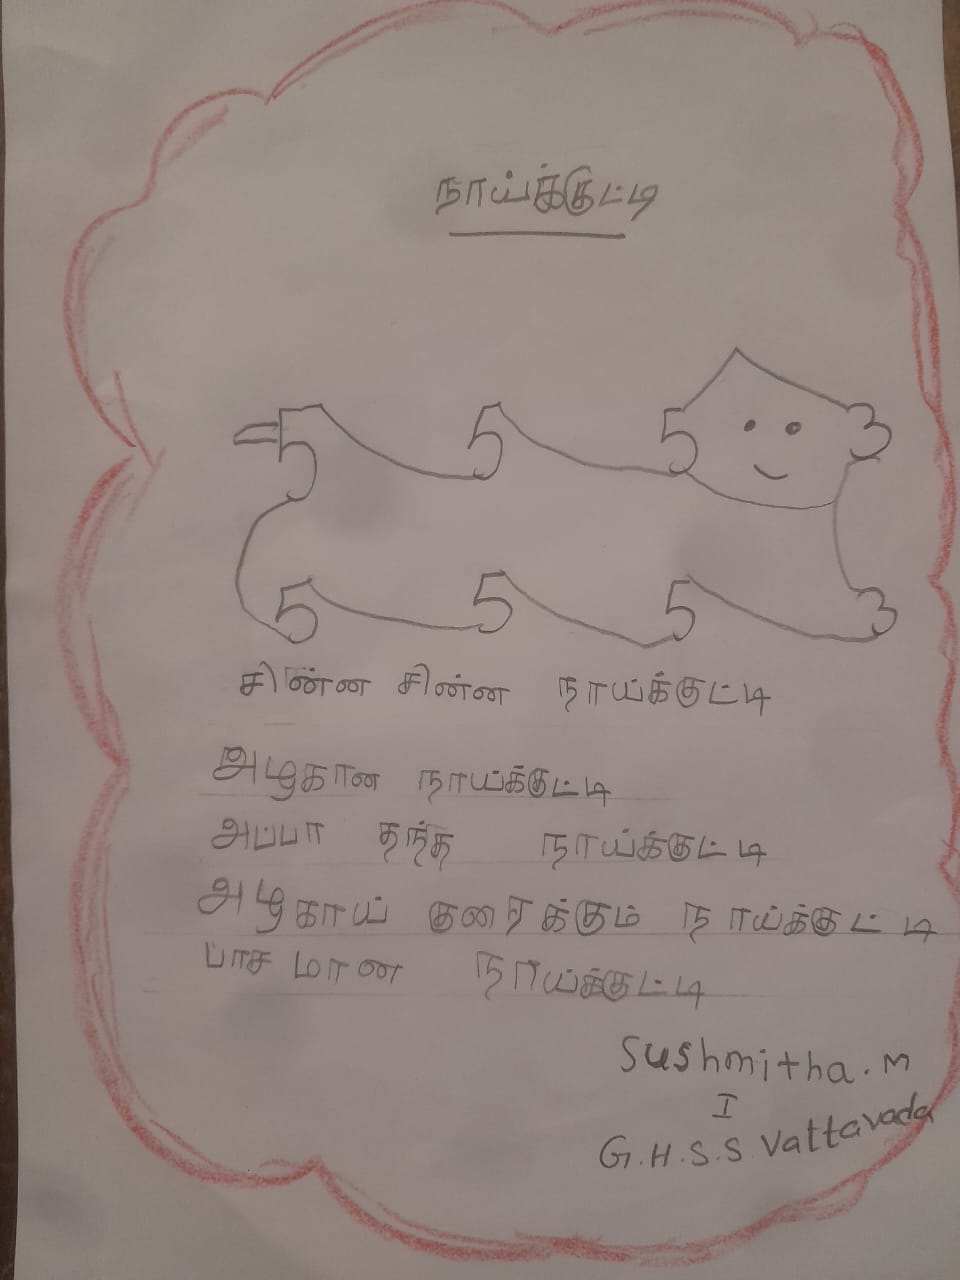 நாய்க்குட்டி
5 5 5 3
5 5 5 3
சின்ன சின்ன நாய்க்குட்டி
அழகான நாய்க்குட்டி
அப்பா தந்த நாய்க்குட்டி
அழகாய் குரைக்கும் நாய்க்குட்டி
பாசமான நாய்க்குட்டி
Sushmitha. M
I
G.H.S.S Vattavada